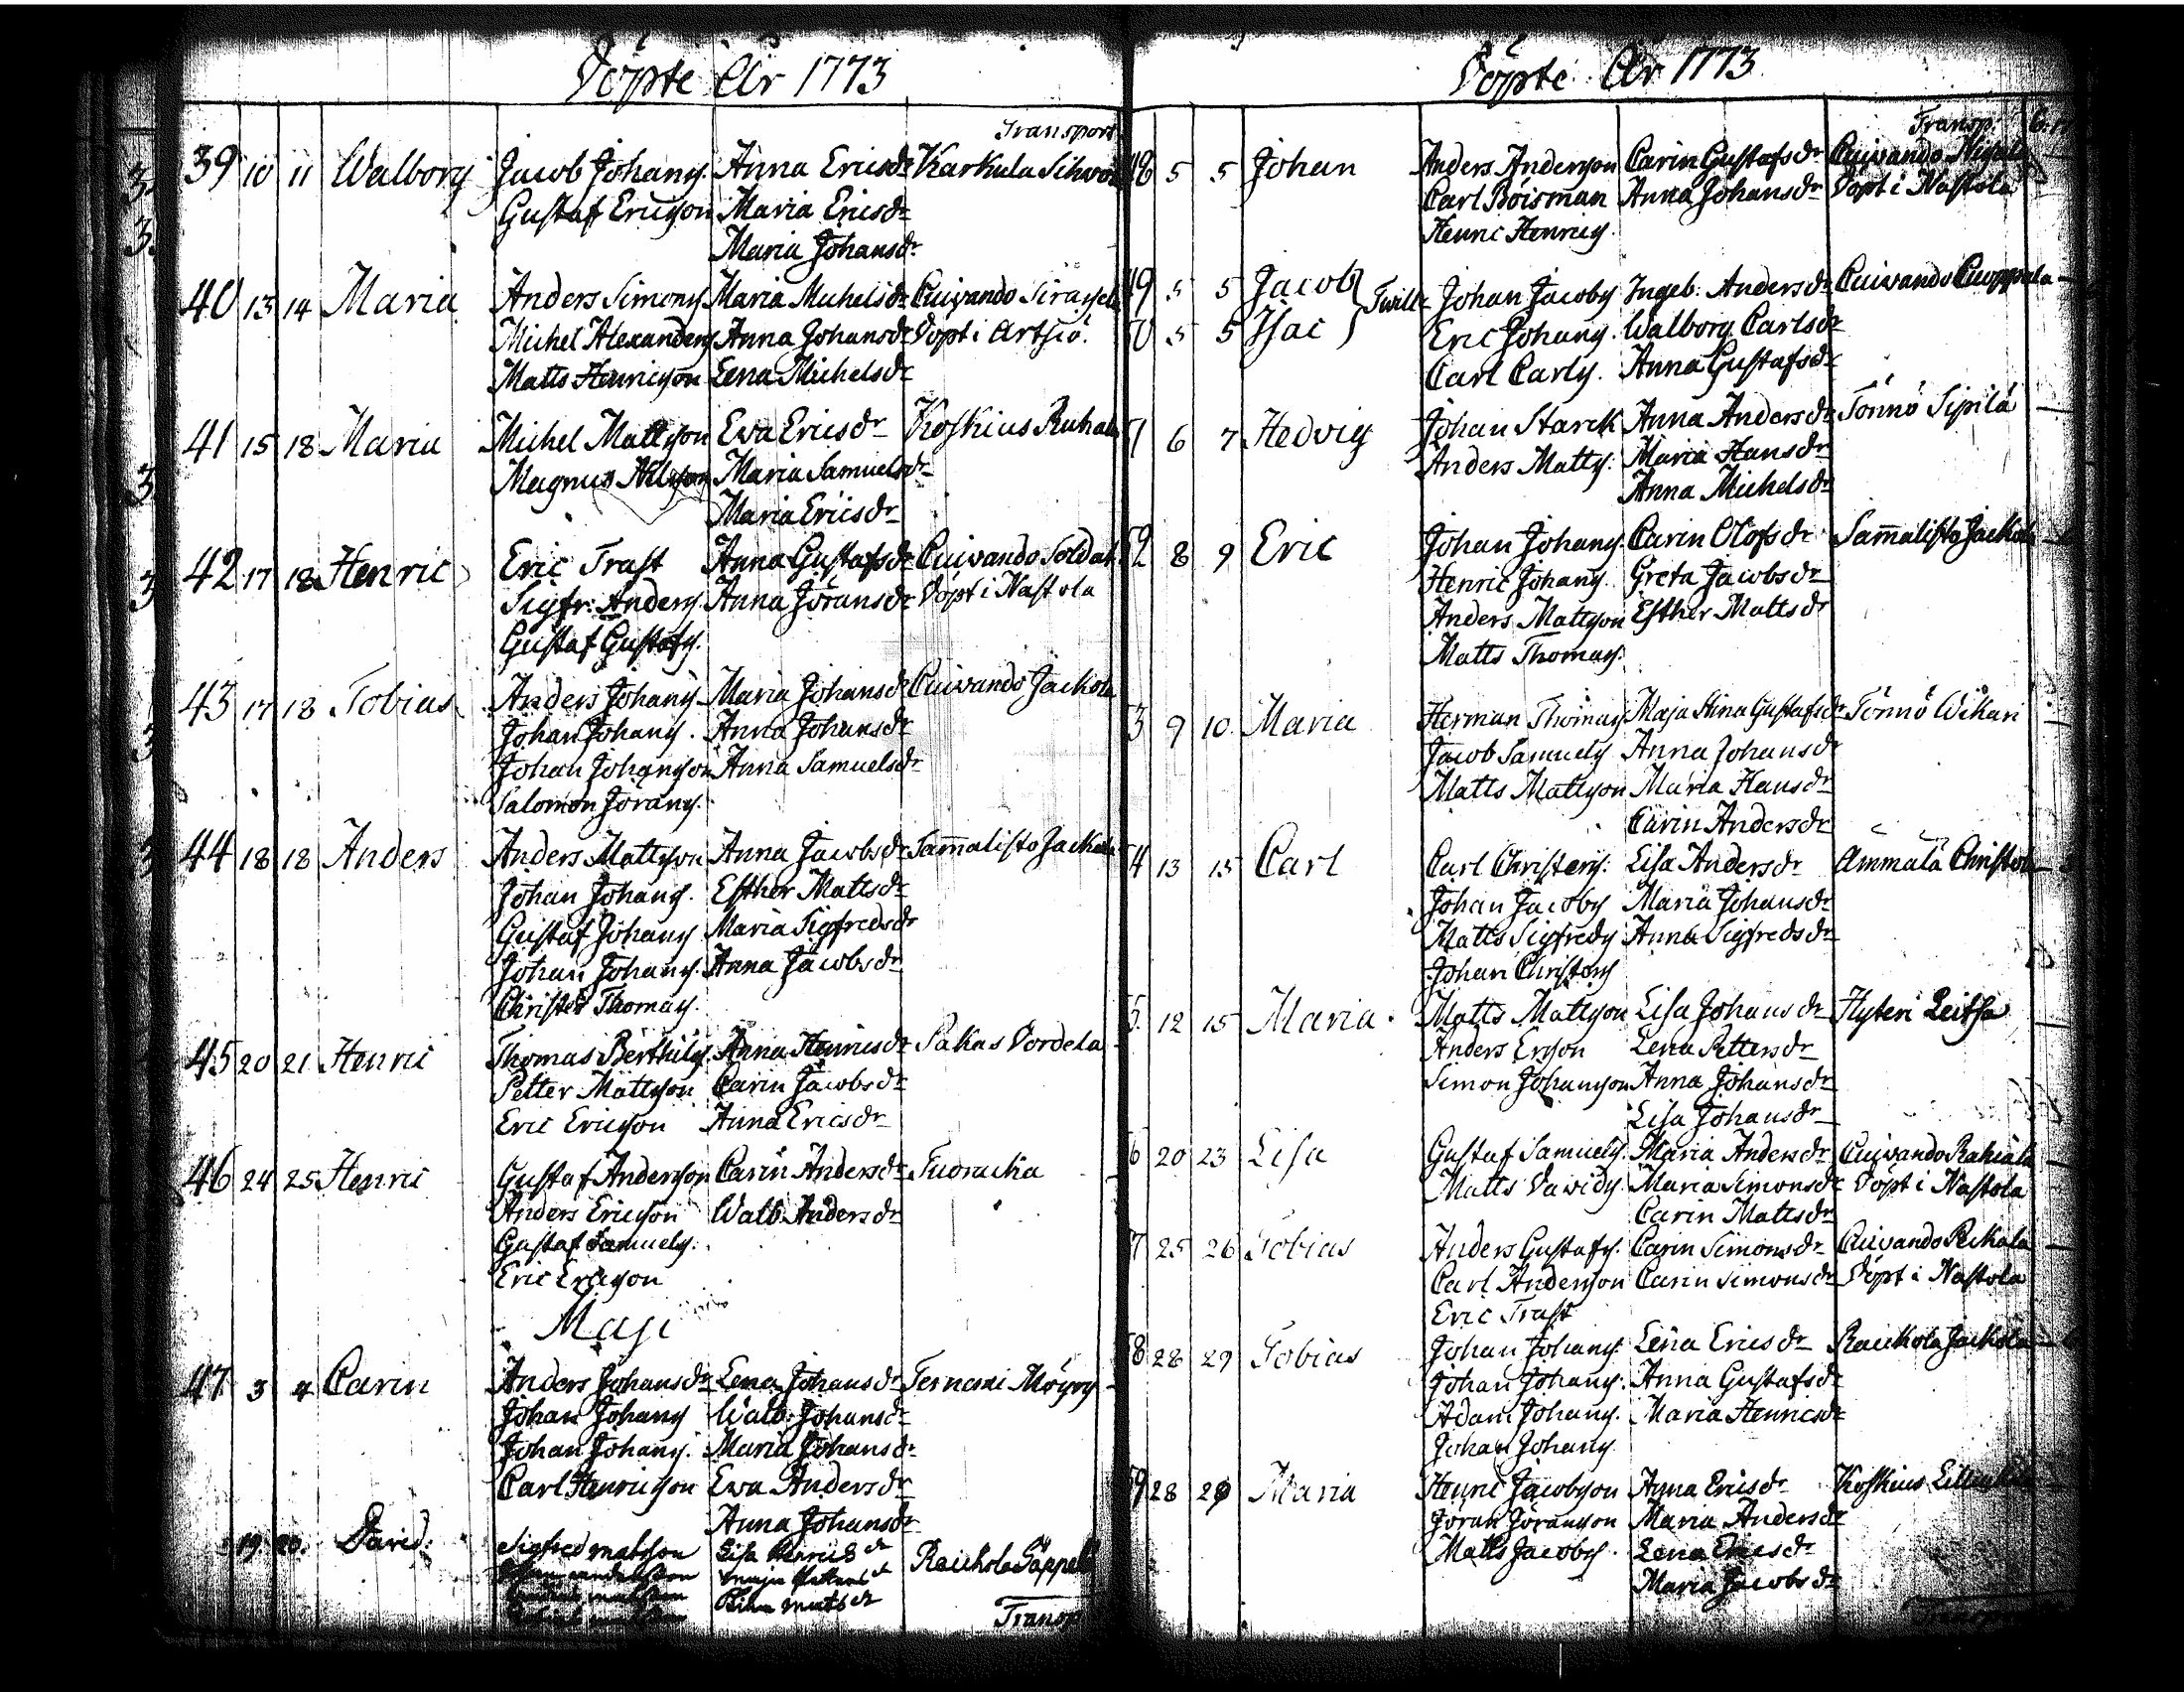 Döpte År 1773
Transport
39 10 11 Walborg Jacob Johans. Anna Ericsdr Karkula Silwo
Gustaf Ericson Maria Ericsdr
Maria Johansdr
40 13 14 Maria Anders Simons. Maria Michelsdr Cuivando
Michel Alexanders Anna Johansdr Döpt i Artsiö.
Matts Henricson Lena Michelsdr
41 15 18 Maria Michel Mattson Ewa Ericsdr Koskius
Magnus Nilson Maria Samuelsdr
Maria Ericsdr
42 17 18 Henric Eric Trast Anna Gustafsdr Cuivando Soldat
Sigfr: Anders. Anna Jöransdr Döpt i Nastola
Gustaf Gustafs.
43 17 18 Tobias Anders Johans. Maria Johansdr Cuivando Jackola
Johan Johans. Anna Johansdr
Johan Johanson Anna Samuelsdr
Salomon Jörans.
44 18 18 Anders Anders Mattson Anna Jacobsdr Sam̄alisto Jackola
Johan Johans. Esther Mattsdr
Gustaf Johans Maria Sigfredsdr
Johan Johans. Anna Jacobsdr
Christer Thomas.
45 20 21 Henric Thomas Berthils. Anna Henricsdr Sakas Dordela
Petter Mattson Carin Jacobsdr
Eric Ericson Anna Ericsdr
46 24 25 Henric Gustaf Anderson Carin Andersdr Tuorackа
Anders Ericson Walb. Andersdr
Gustaf Samuels.
Eric Ericson
Maji
47 3 4 Carin Anders Johansdr Lena Johansdr Ternomi Möyry
Johan Johans Walb: Johansdr
Johan Johans. Maria Johansdr
Carl Henricson Ewa Andersdr
Anna Johansdr
19. 20. David. Sigfred matsson Lisa Henriksdr Raickola
Stina matsdr
Transp
Döpte År 1773
Transp.
48 5 5 Johan Anders Anderson Carin Gustafsdr Cuivando
Carl Boisman Anna Johansdr Döpt i Nastola
Henric Henrics.
49 5 5 Jacob Twill: Johan Jacobs Ingeb: Andersdr Cuivando Cuoppala
50 5 5 Isac Eric Johans. Walborg Carlsdr
Carl Carls. Anna Gustafsdr
51 6 7 Hedvig Johan Starck Anna Andersdr Tönnö Sipilä
Anders Matts. Maria Hansdr
Anna Michelsdr
52 8 9 Eric Johan Johans. Carin Olofsdr Sam̄alisto Jackola
Henric Johans. Greta Jacobsdr
Anders Mattson Esther Mattsdr
Matts Thomas.
53 9 10 Maria Herman Thomas Maja Stina Gustafsdr Tönnö Wikari
Jacob Samuels Anna Johansdr
Matts Mattson Maria Hansdr
Carin Andersdr
54 13 15 Carl Carl Christers. Lisa Andersdr Ammälä Christola
Johan Jacobs Maria Johansdr
Matts Sigfreds Anna Sigfredsdr
Johan Christers
55 12 15 Maria Matts Mattson Lisa Johansdr Hyteri Leitsa
Anders Ersson Lena Pettersdr
Simon Johanson Anna Johansdr
Lisa Johansdr
56 20 23 Lisa Gustaf Samuels. Maria Andersdr Cuivando Rakiala
Matts Davids. Maria Simonsdr Döpt i Nastola
Carin Mattsdr
57 25 26 Tobias Anders Gustafs. Carin Simonsdr Cuivando Reikala
Carl Anderson Carin Simonsdr Döpt i Nastola
Eric Trast
58 28 29 Tobias Johan Johans. Lena Ericsdr Raickola Jackola
Johan Johans. Anna Gustafsdr
Adam Johans. Maria Henricsdr
Johan Johans
59 28 29 Maria Henric Jacobson Anna Ericsdr Koskius
Jöran Jöranson Maria Andersdr
Matts Jacobs. Lena Ericsdr
Maria Jacobsdr